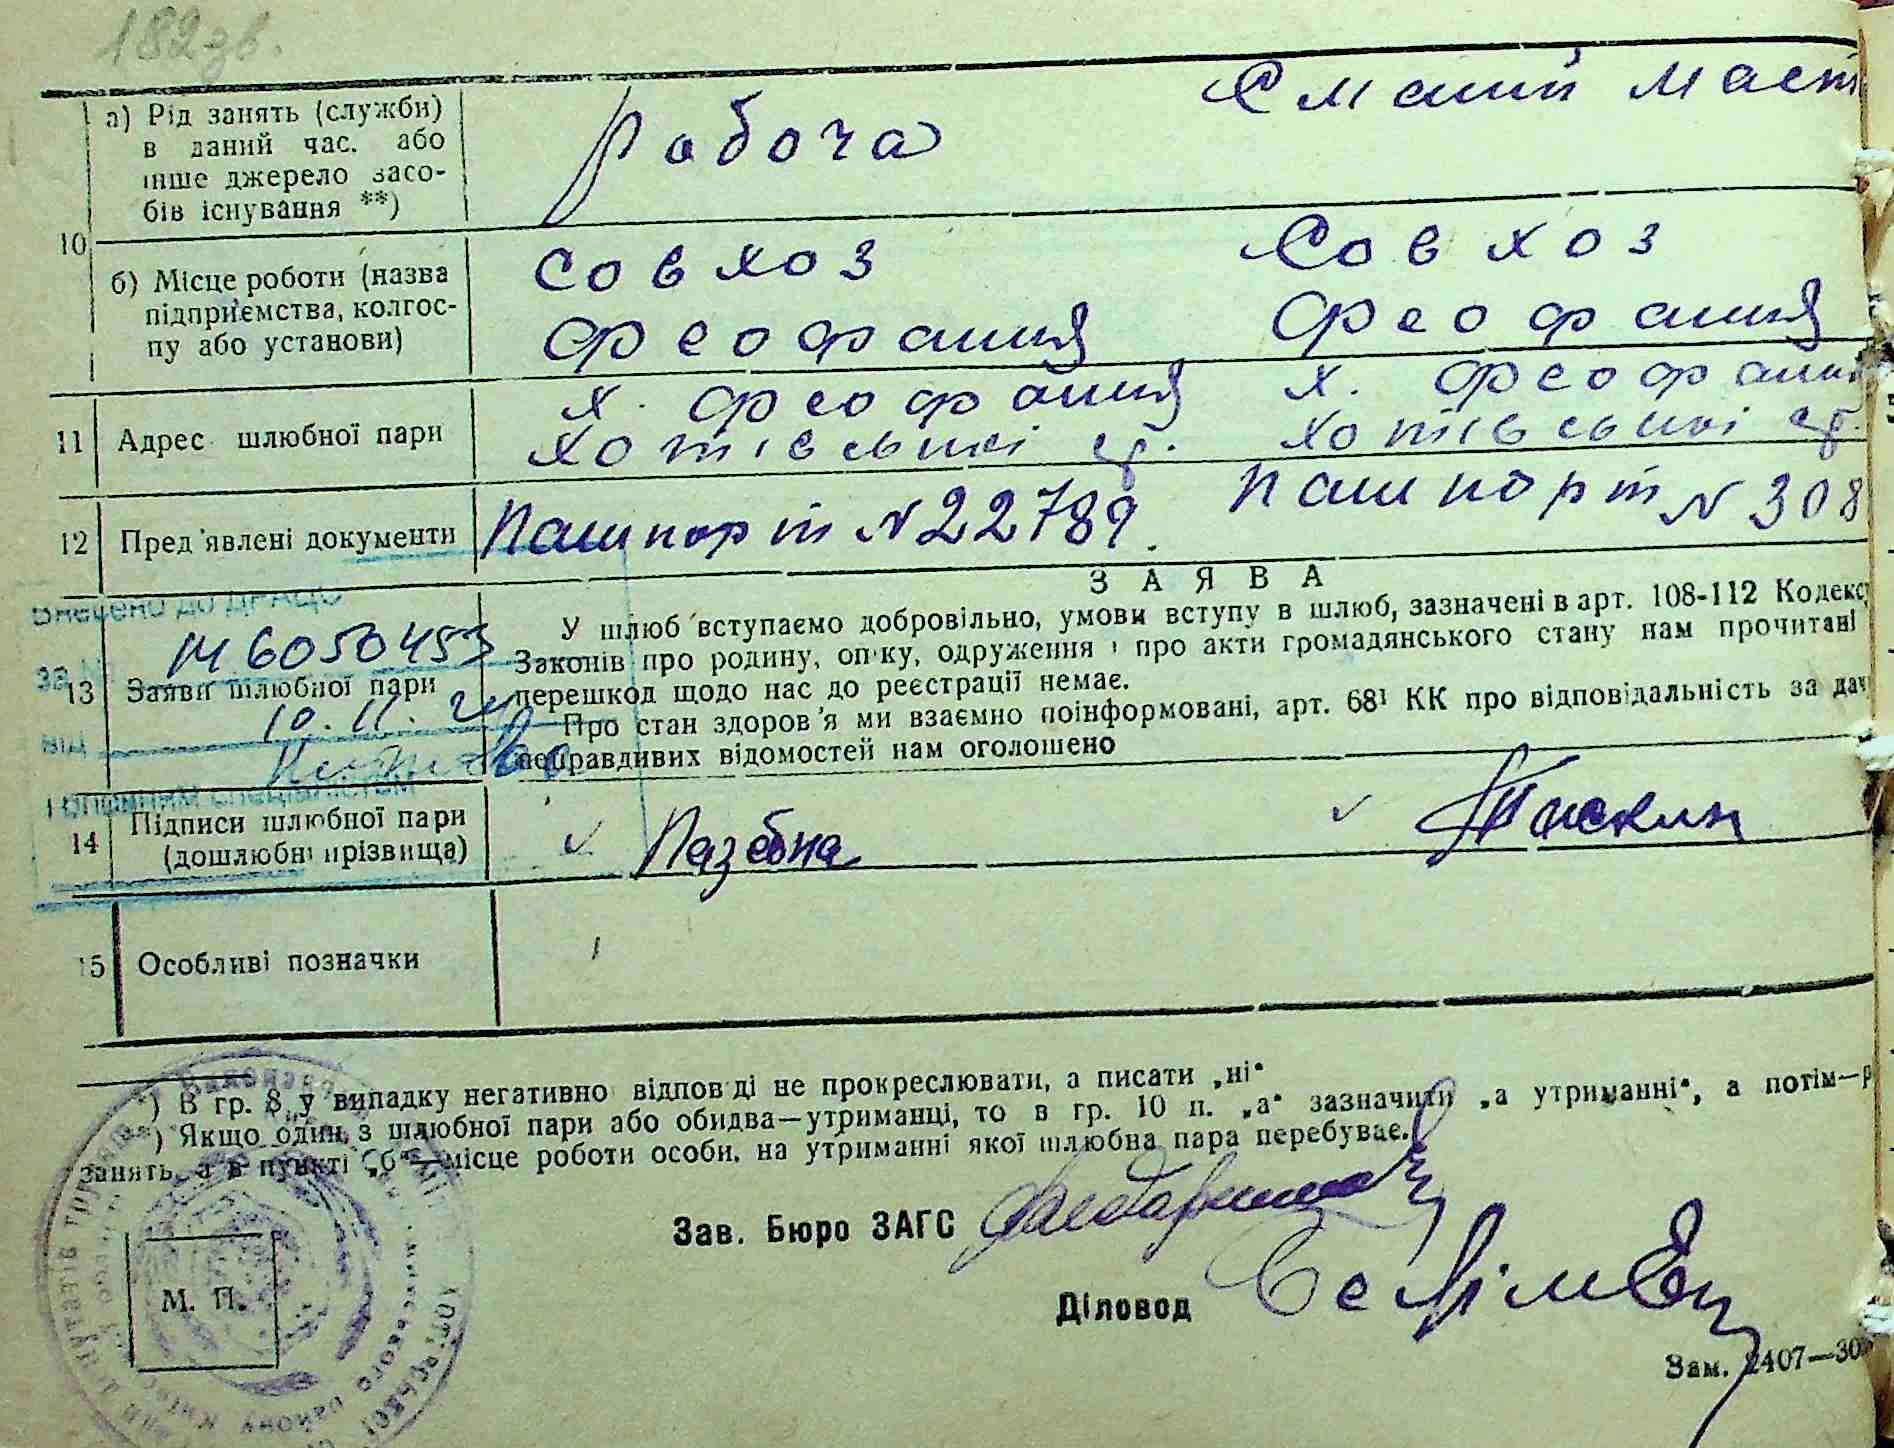 182зв.
а) Рід занять (служби)
в даний час, або
інше джерело засо-
бів існування **)
Робоча
10
б) Місце роботи (назва
підприємства, колгос-
пу або установи)
Совхоз
Совхоз
Феофания
Феофания
11 Адрес шлюбної пари
х. Феофания
х. Феофани
Хотівської ср.
Хотівської ср.
12 Пред'явлені документи
Пашпорт N 22789.
Пашпорт N 308
Внесено до ДРАЦС
за
№ 6050453
13 Заяви шлюбної пари
10. 11.
від
Головним спеціалістом
ЗАЯВА
У шлюб вступаємо добровільно, умови вступу в шлюб, зазначені в арт. 108-112 Кодексу
Законів про родину, опіку, одруження і про акти громадянського стану нам прочитані
перешкод щодо нас до реєстрації немає.
Про стан здоров'я ми взаємно поінформовані, арт. 68¹ КК про відповідальність за дач
неправдивих відомостей нам оголошено
14 Підписи шлюбної пари
(дошлюбні прізвища)
✓ Лазебна
✓ Пискин
15 Особливі позначки
) В гр. 8 у випадку негативної відповіді не прокреслювати, а писати „ні"
) Якщо один з шлюбної пари або обидва—утриманці, то в гр. 10 п. „а" зазначити „а утриманні", а потім—р
занять, а в пункті „б"—місце роботи особи, на утриманні якої шлюбна пара перебуває.
Зав. Бюро ЗАГС
Діловод
М. П.
Зам. 2407—30